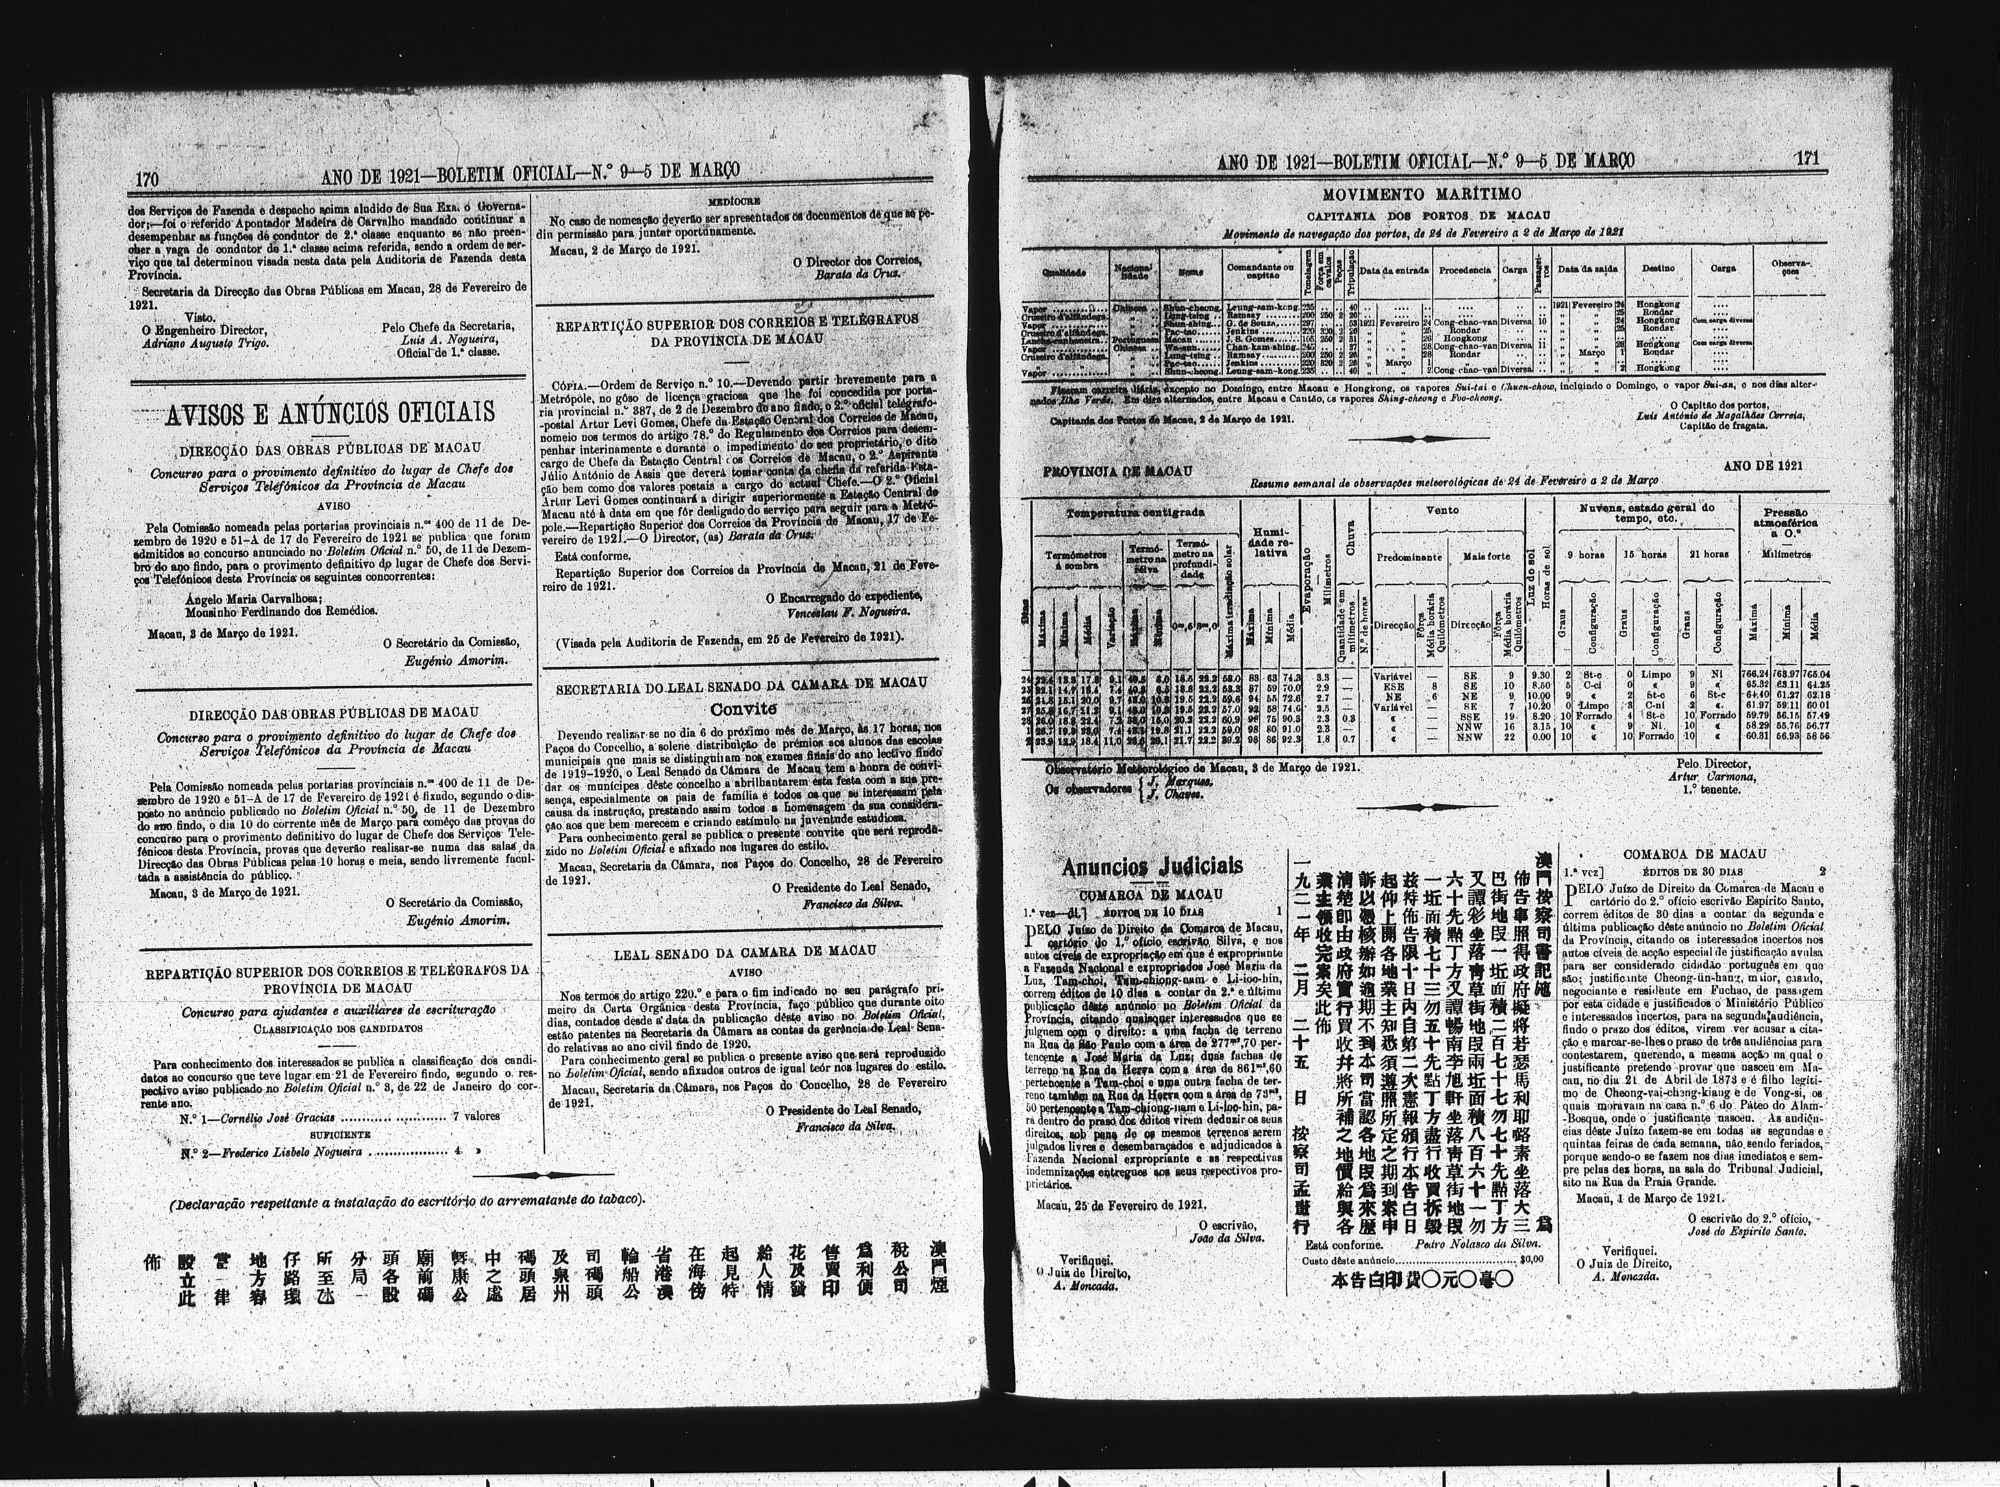 170
ANO DE 1921—BOLETIM OFICIAL—N.º 9—5 DE MARÇO
dos Serviços de Fazenda e despacho acima aludido de Sua Exa. o Governa-
dor;—foi o referido Apontador Madeira de Carvalho mandado continuar a
desempenhar as funções de condutor de 2.ª classe enquanto se não preen-
cher a vaga de condutor de 1.ª classe acima referida, sendo a ordem de ser-
viço que tal determinou visada nesta data pela Auditoria de Fazenda desta
Província.
Secretaria da Direcção das Obras Públicas em Macau, 28 de Fevereiro de
1921.
Visto.
O Engenheiro Director,
Adriano Augusto Trigo.
Pelo Chefe da Secretaria,
Luís A. Nogueira,
Oficial de 1.ª classe.
AVISOS E ANÚNCIOS OFICIAIS
DIRECÇÃO DAS OBRAS PÚBLICAS DE MACAU
Concurso para o provimento definitivo do lugar de Chefe dos
Serviços Telefónicos da Província de Macau
AVISO
Pela Comissão nomeada pelas portarias provinciais n.ºs 400 de 11 de De-
zembro de 1920 e 51-A de 17 de Fevereiro de 1921 se publica que foram
admitidos ao concurso anunciado no Boletim Oficial n.º 50, de 11 de Dezem-
bro do ano findo, para o provimento definitivo do lugar de Chefe dos Servi-
ços Telefónicos desta Província os seguintes concorrentes:
Ângelo Maria Carvalhosa;
Mousinho Ferdinando dos Remédios.
Macau, 3 de Março de 1921.
O Secretário da Comissão,
Eugénio Amorim.
DIRECÇÃO DAS OBRAS PÚBLICAS DE MACAU
Concurso para o provimento definitivo do lugar de Chefe dos
Serviços Telefónicos da Província de Macau
Pela Comissão nomeada pelas portarias provinciais n.ºs 400 de 11 de De-
zembro de 1920 e 51-A de 17 de Fevereiro de 1921 é fixado, segundo o dis-
posto no anúncio publicado no Boletim Oficial n.º 50, de 11 de Dezembro
do ano findo, o dia 10 do corrente mês de Março para começo das provas do
concurso para o provimento definitivo do lugar de Chefe dos Serviços Tele-
fónicos desta Província, provas que deverão realisar-se numa das salas da
Direcção das Obras Públicas pelas 10 horas e meia, sendo livremente facul-
tada a assistência do público.
Macau, 3 de Março de 1921.
O Secretário da Comissão,
Eugénio Amorim.
REPARTIÇÃO SUPERIOR DOS CORREIOS E TELÉGRAFOS DA
PROVÍNCIA DE MACAU
Concurso para ajudantes e auxiliares de escrituração
CLASSIFICAÇÃO DOS CANDIDATOS
Para conhecimento dos interessados se publica a classificação dos candi-
datos ao concurso que teve lugar em 21 de Fevereiro findo, segundo o res-
pectivo aviso publicado no Boletim Oficial n.º 3, de 22 de Janeiro do cor-
rente ano.
N.º 1—Cornélio José Gracias ........................ 7 valores
SUFICIENTE
N.º 2—Frederico Lisbelo Nogueira .................. 4 »
MEDÍOCRE
No caso de nomeação deverão ser apresentados os documentos de que se pe-
diu permissão para juntar oportunamente.
Macau, 2 de Março de 1921.
O Director dos Correios,
Barata da Cruz.
REPARTIÇÃO SUPERIOR DOS CORREIOS E TELÉGRAFOS
DA PROVÍNCIA DE MACAU
CÓPIA.—Ordem de Serviço n.º 10.—Devendo partir brevemente para a
Metrópole, no gôso de licença graciosa que lhe foi concedida por porta-
ria provincial n.º 387, de 2 de Dezembro do ano findo, o 2.º oficial telégrafo-
-postal Artur Levi Gomes, Chefe da Estação Central dos Correios de Macau,
nomeio nos termos do artigo 78.º do Regulamento dos Correios para desem-
penhar interinamente e durante o impedimento do seu proprietário, o dito
cargo de Chefe da Estação Central dos Correios de Macau, o 2.º Aspirante
Júlio António de Assis que deverá tomar conta da chefia da referida Esta-
ção bem como dos valores postais a cargo do actual Chefe.—O 2.º Oficial
Artur Levi Gomes continuará a dirigir superiormente a Estação Central de
Macau até à data em que fôr desligado do serviço para seguir para a Metró-
pole.—Repartição Superior dos Correios da Província de Macau, 17 de Fe-
vereiro de 1921.—O Director, (as) Barata da Cruz.
Está conforme.
Repartição Superior dos Correios da Província de Macau, 21 de Feve-
reiro de 1921.
O Encarregado do expediente,
Venceslau F. Nogueira.
(Visada pela Auditoria de Fazenda, em 25 de Fevereiro de 1921).
SECRETARIA DO LEAL SENADO DA CAMARA DE MACAU
Convite
Devendo realizar-se no dia 6 do próximo mês de Março, às 17 horas, nos
Paços do Concelho, a solene distribuição de prémios aos alunos das escolas
municipais que mais se distinguiram nos exames finais do ano lectivo findo
de 1919-1920, o Leal Senado da Câmara de Macau tem a honra de convi-
dar os munícipes dêste concelho a abrilhantarem esta festa com a sua pre-
sença, especialmente os pais de família e todos os que se interessam pela
causa da instrução, prestando assim todos a homenagem da sua considera-
ção aos que bem merecem e criando estímulo na juventude estudiosa.
Para conhecimento geral se publica o presente convite que será reprodu-
zido no Boletim Oficial e afixado nos lugares do estilo.
Macau, Secretaria da Câmara, nos Paços do Concelho, 28 de Fevereiro
de 1921.
O Presidente do Leal Senado,
Francisco da Silva.
LEAL SENADO DA CAMARA DE MACAU
AVISO
Nos termos do artigo 220.º e para o fim indicado no seu parágrafo pri-
meiro da Carta Orgânica desta Província, faço público que durante oito
dias, contados desde a data da publicação dêste aviso no Boletim Oficial,
estão patentes na Secretaria da Câmara as contas da gerência do Leal Sena-
do relativas ao ano civil findo de 1920.
Para conhecimento geral se publica o presente aviso que será reproduzido
no Boletim Oficial, sendo afixados outros de igual teôr nos lugares do estilo.
Macau, Secretaria da Câmara, nos Paços do Concelho, 28 de Fevereiro
de 1921.
O Presidente do Leal Senado,
Francisco da Silva.
(Declaração respeitante a instalação do escritório do arrematante do tabaco).
澳門煙
稅公司
爲利便
售買印
花及發
給人情
起見特
在海傍
省港澳
輪船公
司碼頭
及泉州
碼頭居
中之處
蚌康公
廟前碼
頭各設
分局一
所至氹
仔路環
地方容
當一律
設立此
佈
ANO DE 1921—BOLETIM OFICIAL—N.º 9—5 DE MARÇO
171
MOVIMENTO MARÍTIMO
CAPITANIA DOS PORTOS DE MACAU
Movimento de navegação dos portos, de 24 de Fevereiro a 2 de Março de 1921
Qualidade Nacionalidade Nome Comandante ou capitão Tonelagem Força em cavalos Peças Tripulação Data da entrada Procedencia Carga Passageiros Data da saída Destino Carga Observações
Ficaram carreira diária, excepto no Domingo, entre Macau e Hongkong, os vapores Sui-tai e Chuen-chow, incluindo o Domingo, o vapor Sui-an, e nos dias alter-
nados Ilha Verde. Em dias alternados, entre Macau e Cantão, os vapores Shing-cheong e Foo-cheong.
Capitania dos Portos de Macau, 2 de Março de 1921.
O Capitão dos portos,
Luís António de Magalhães Correia,
Capitão de fragata.
PROVÍNCIA DE MACAU
ANO DE 1921
Resumo semanal de observações meteorológicas de 24 de Fevereiro a 2 de Março
Temperatura centigrada
Humidade relativa
Evaporação Milímetros
Chuva
Vento
Luz do sol Horas de sol
Nuvens, estado geral do tempo, etc.
Pressão atmosférica a 0.º
Termómetros à sombra
Termómetro na relva
Termómetro na profundidade
Predominante
Mais forte
9 horas
15 horas
21 horas
Milímetros
Variável — SE 9 9.30 2 St-c 0 Limpo 9 Ni 766.24 763.97 765.04
ESE 8 SE 10 8.50 5 C-ci 0 « 9 « 65.32 63.11 64.25
NE 6 NE 9 10.00 9 « 2 St-c 6 St-c 64.40 61.27 62.18
Variável — SE 7 10.20 0 Limpo 3 C-ni 2 « 61.97 59.11 60.01
« — SSE 19 8.20 10 Forrado 4 St-c 10 Forrado 59.79 56.15 57.49
« — NNW 16 3.15 10 « 9 Ni 10 « 58.29 55.76 56.77
« — NNW 22 0.00 10 « 10 Forrado 10 « 60.31 56.93 58.56
Observatório Meteorológico de Macau, 3 de Março de 1921.
Os observadores { J. Marques.
J. Chaves.
Pelo Director,
Artur Carmona,
1.º tenente.
Anuncios Judiciais
COMARCA DE MACAU
ÉDITOS DE 10 DIAS 1
PELO Juízo de Direito da Comarca de Macau,
cartório do 1.º ofício, escrivão Silva, e nos
autos cíveis de expropriação em que é expropriante
a Fazenda Nacional e expropriados José Maria da
Luz, Tam-choi, Tam-chiong-nam e Li-ioo-hin,
correm éditos de 10 dias a contar da 2.ª e última
publicação dêste anúncio no Boletim Oficial da
Província, citando quaisquer interessados que se
julguem com o direito: a uma facha de terreno
na Rua de São Paulo com a área de 277m²,70 per-
tencente a José Maria da Luz; duas fachas de
terreno na Rua da Herva com a área de 861m²,60
pertencente a Tam-choi e uma outra facha de ter-
reno também na Rua da Herva com a área de 73m²,
50 pertencente a Tam-chiong-nam e Li-ioo-hin, pa-
ra dentro do praso dos éditos virem deduzir os seus
direitos, sob pena de os mesmos terrenos serem
julgados livres e desembaraçados e adjudicados à
Fazenda Nacional expropriante e as respectivas
indemnizações entregues aos seus respectivos pro-
prietários.
Macau, 25 de Fevereiro de 1921.
O escrivão,
João da Silva.
Verifiquei.
O Juiz de Direito,
A. Moncada.
澳門按察司署記 爲
佈告事照得政府擬將若瑟馬利耶路素坐落大三
巴街地段一坵面積二百七十七勿七十先點丁方
又譚彩坐落靑草街地段兩坵面積八百六十一勿
六十先點丁方又譚暢南李旭軒坐落靑草街地段
一坵面積七十三勿五十先點丁方盡行收買拆毀
茲特佈告限十日內自第二次憲報頒行本告白日
起仰上開各地業主知悉須遵照所定之期到案申
訴以憑核辦如逾期不到本司當認各地段爲來歷
淸楚卽由政府實行買收幷將所補之地價給與各
業主領收完案矣此佈
一九二一年 二月 二十五 日 按察司孟 行
Está conforme. Pedro Nolasco da Silva.
Custo dêste anúncio.............................. $0,00
本告白印費〇元〇毫〇
COMARCA DE MACAU
1.ª vez] ÉDITOS DE 30 DIAS 2
PELO Juízo de Direito da Comarca de Macau e
cartório do 2.º ofício escrivão Espírito Santo,
correm éditos de 30 dias a contar da segunda e
última publicação dêste anúncio no Boletim Oficial
da Província, citando os interessados incertos nos
autos cíveis de acção especial de justificação avulsa
para ser considerado cidadão português em que
são; justificante Cheong-ün-hang, maior, casado,
negociante e residente em Fuchao, de passagem
por esta cidade e justificados o Ministério Público
e interessados incertos, para na segunda audiência,
findo o prazo dos éditos, virem ver acusar a cita-
ção e marcar-se-lhes o praso de três audiências para
contestarem, querendo, a mesma acção na qual o
justificante pretende provar que nasceu em Ma-
cau, no dia 21 de Abril de 1873 e é filho legíti-
mo de Cheong-vai-chong-kiang e de Vong-si, os
quais moravam na casa n.º 6 do Páteo do Alam-
-Bosque, onde o justificante nasceu. As audiên-
cias dêste Juízo fazem-se em todas as segundas e
quintas feiras de cada semana, não sendo feriados,
porque sendo-o se fazem nos dias imediatos e sem-
pre pelas dez horas, na sala do Tribunal Judicial,
sito na Rua da Praia Grande.
Macau, 1 de Março de 1921.
O escrivão do 2.º ofício,
José do Espírito Santo.
Verifiquei.
O Juiz de Direito,
A. Moncada.